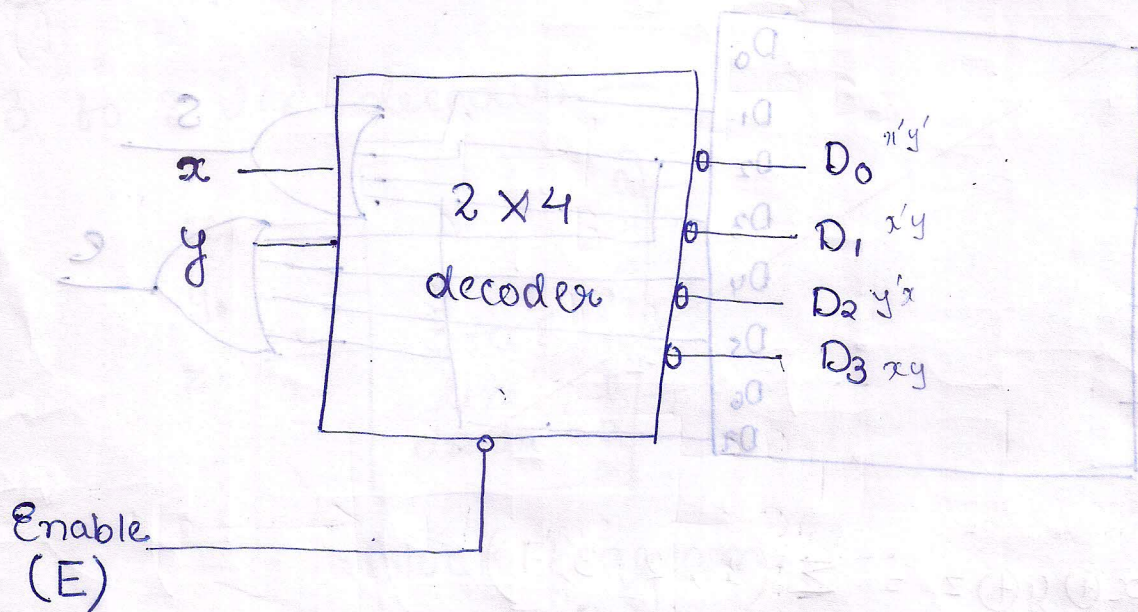 x
y
2 X 4
decoder
D0 x'y'
D1 x'y
D2 y'x
D3 xy
Enable
(E)